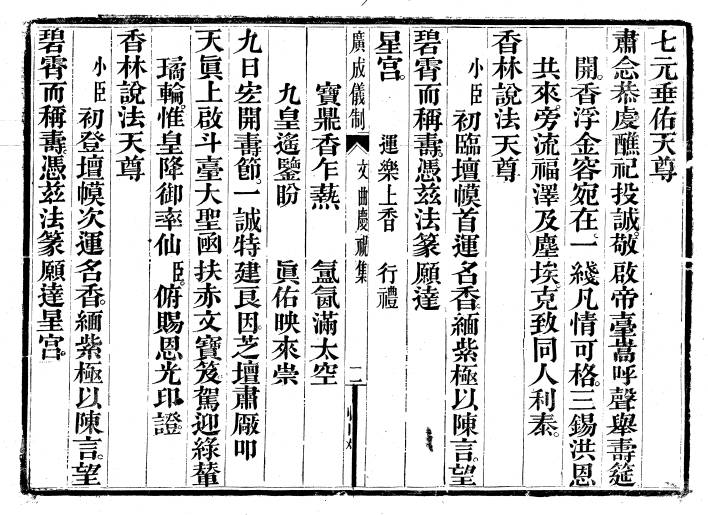 七元垂佑天尊
肅念恭虔醮祀投誠。敬啟帝臺嵩呼聲舉壽筵
開。香浮金容宛在一綫凡情可格。三錫洪恩
共來。旁流福澤及塵埃克致同人利泰。
香林說法天尊
小臣初臨壇幙首運名香。緬紫極以陳言。望
碧霄而稱壽。憑茲法篆願達
星宮。 運樂上香 行禮
廣成儀制 文曲慶祝集 二
寶鼎香乍爇 氳氤滿太空
九皇遙鑒盼 眞佑映來崇
九日宏開壽節。一誠特建艮因。芝壇肅厰叩
天眞上啟斗臺大聖函扶赤文寶笈駕迎綠輦
璚輪惟皇降御率仙臣。俯賜恩光印證
香林說法天尊
小臣初登壇幙次運名香。緬紫極以陳言。望
碧霄而稱壽。憑茲法篆願達星宮。